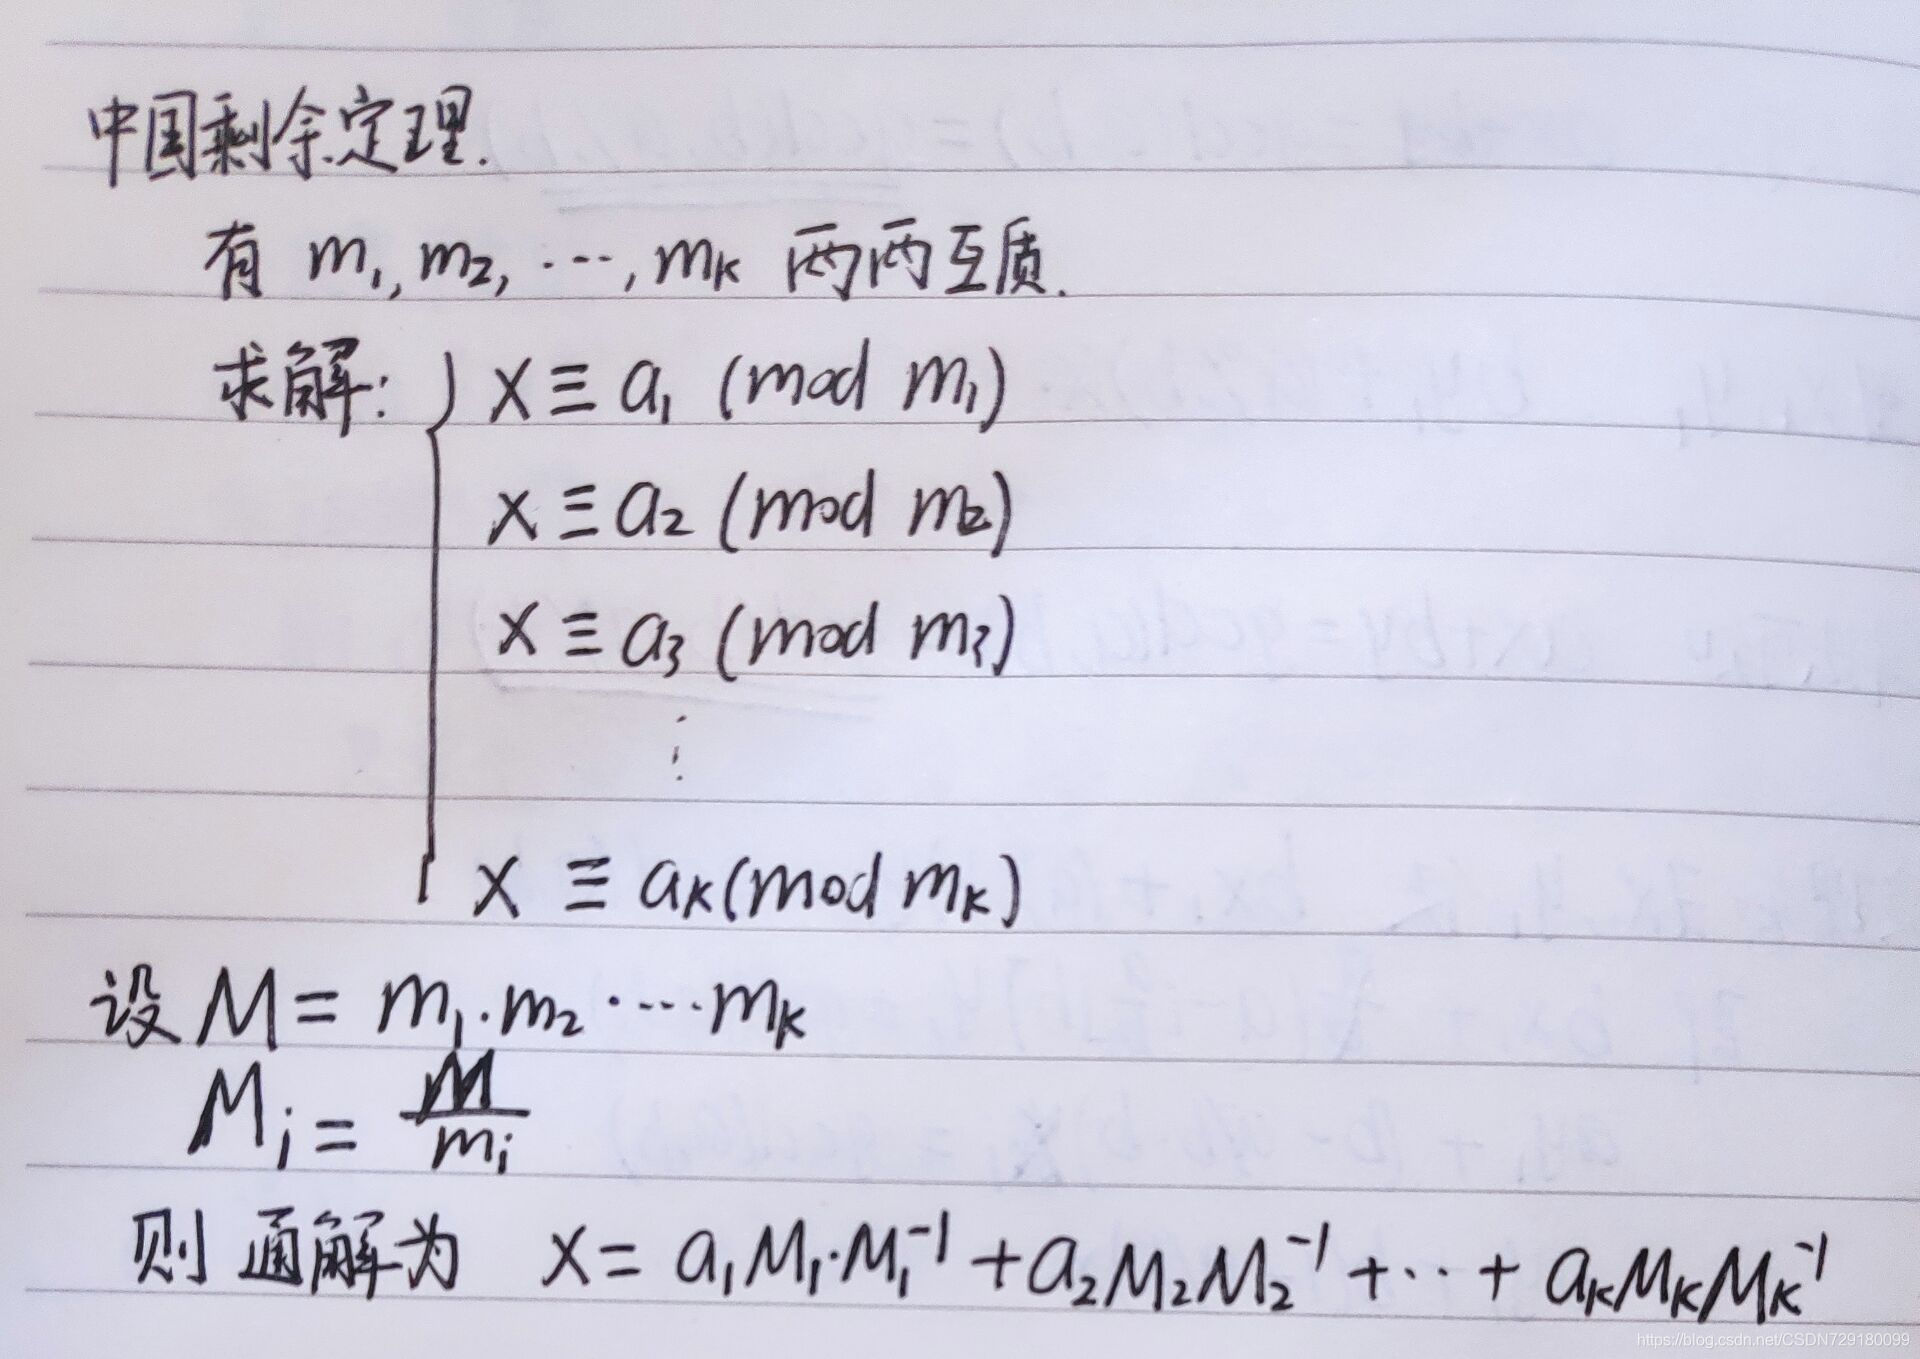 中国剩余定理.
有 m₁, m₂, ⋯, mₖ 两两互质.
求解: { x ≡ a₁ (mod m₁)
x ≡ a₂ (mod m₂)
x ≡ a₃ (mod m₃)
⋮
x ≡ aₖ (mod mₖ)
设 M = m₁·m₂·⋯·mₖ
Mᵢ = M/mᵢ
则 通解为 x = a₁M₁·M₁⁻¹ + a₂M₂M₂⁻¹ + ⋯ + aₖMₖMₖ⁻¹
https://blog.csdn.net/CSDN729180099